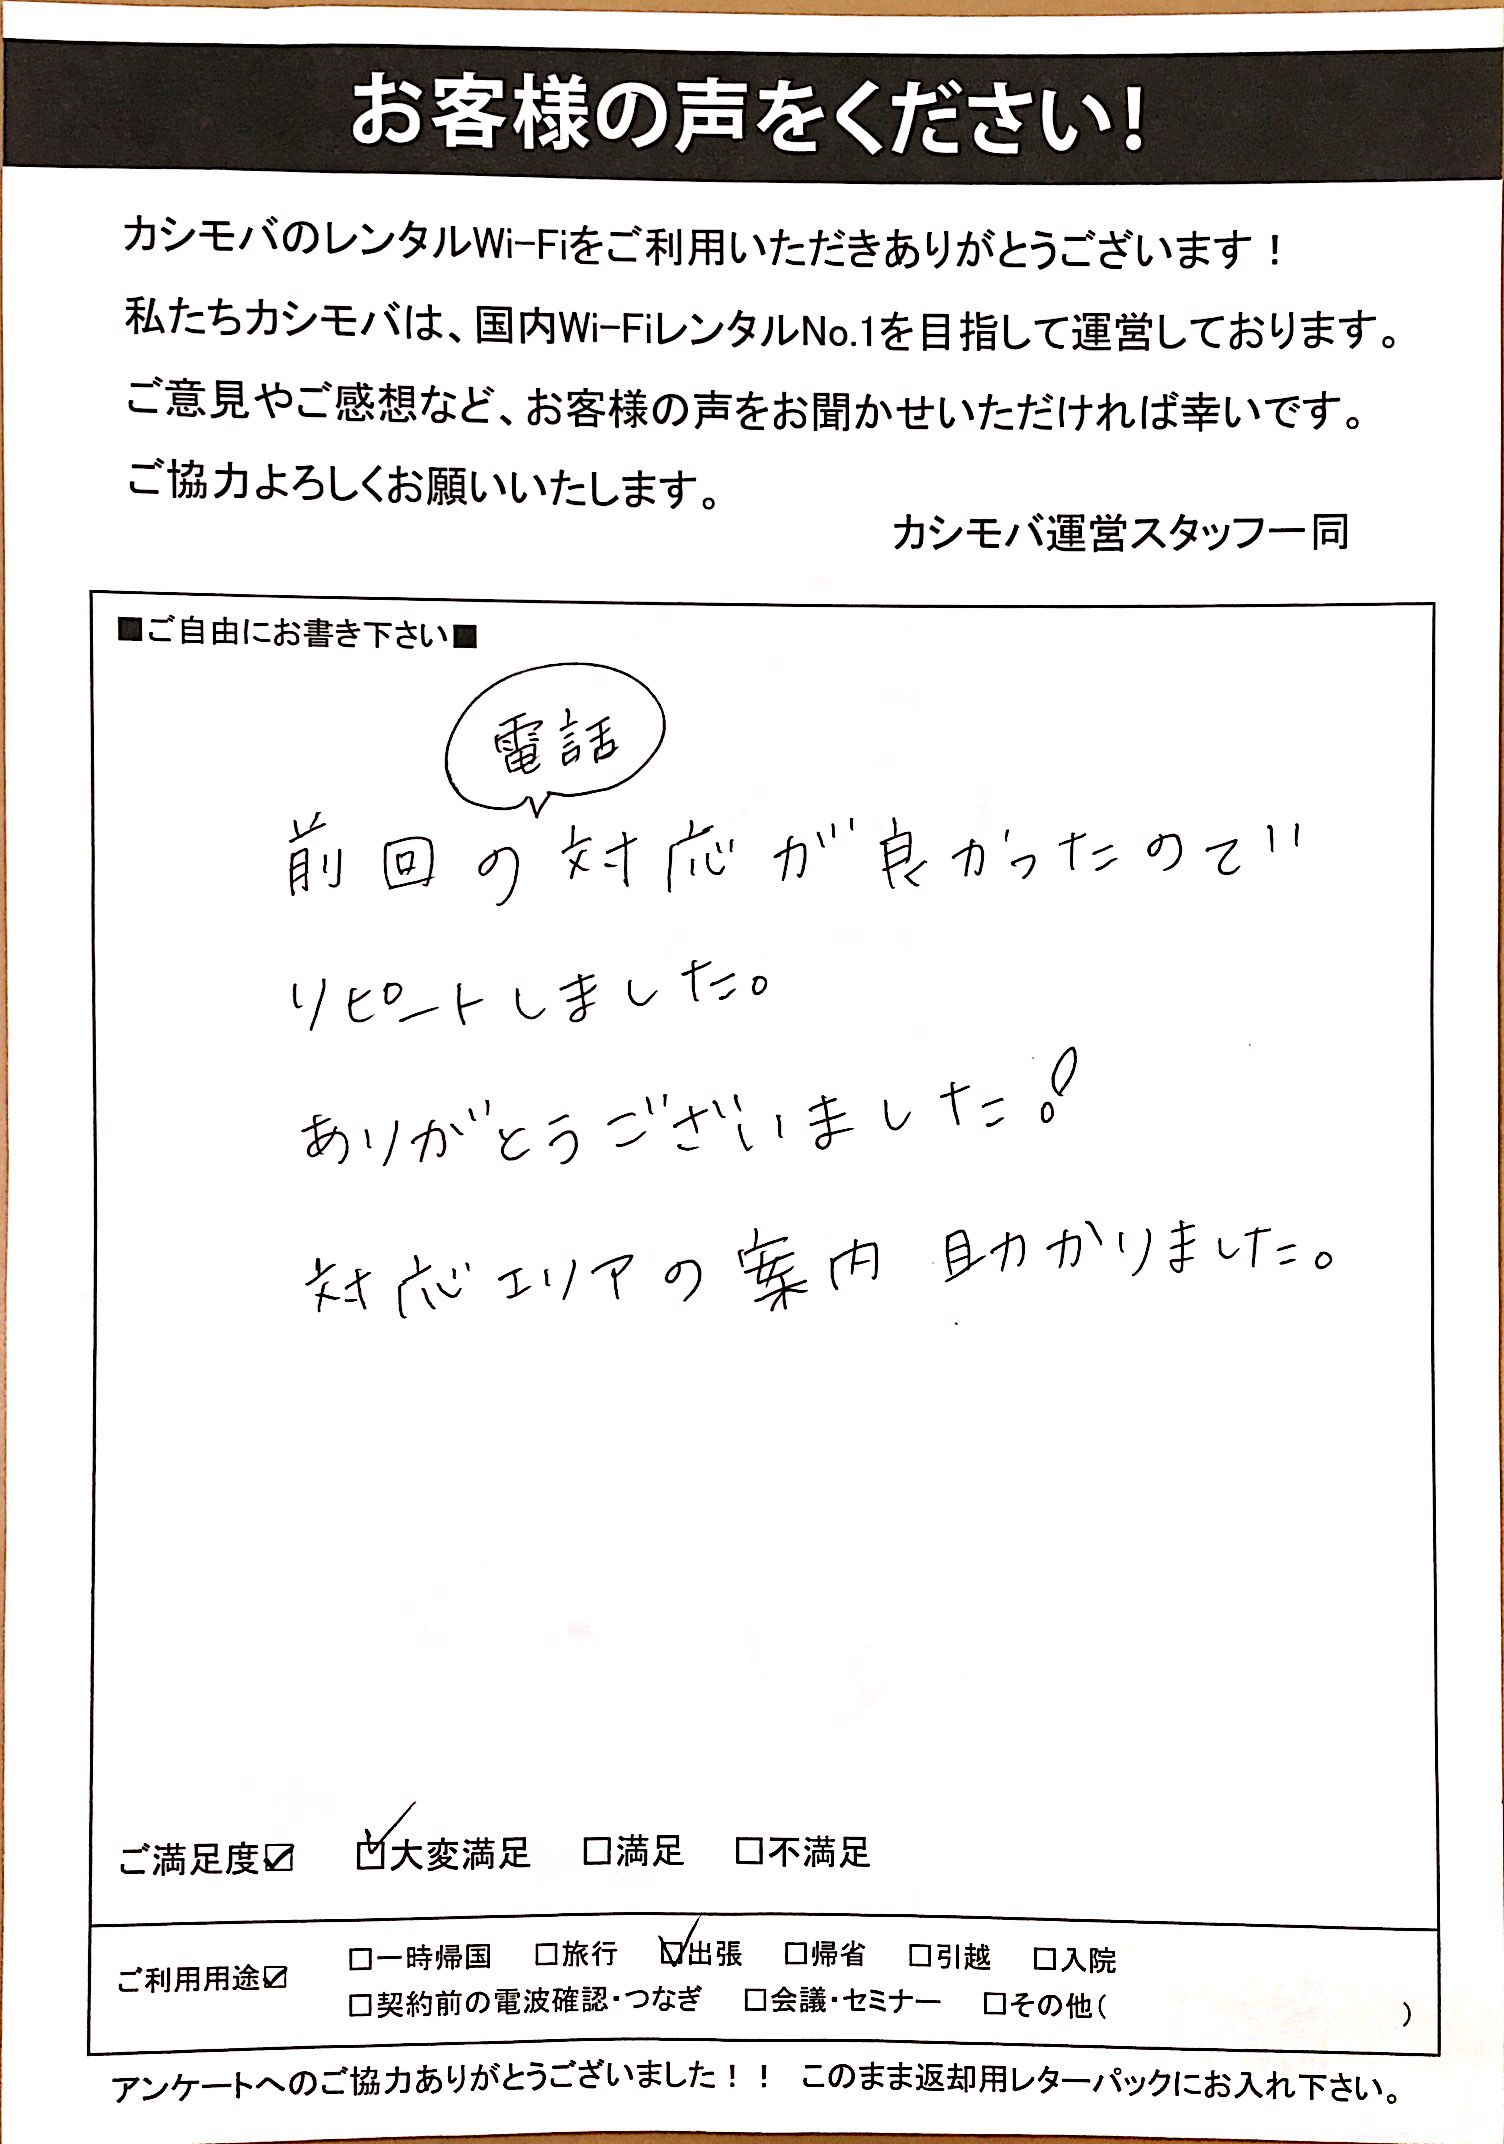 お客様の声をください!
カシモバのレンタルWi-Fiをご利用いただきありがとうございます！
私たちカシモバは、国内Wi-FiレンタルNo.1を目指して運営しております。
ご意見やご感想など、お客様の声をお聞かせいただければ幸いです。
ご協力よろしくお願いいたします。
カシモバ運営スタッフ一同
■ご自由にお書き下さい■
電話
前回の対応が良かったので
リピートしました。
ありがとうございました!
対応エリアの案内 助かりました。
ご満足度☑ ☑大変満足 □満足 □不満足
ご利用用途☑ □一時帰国 □旅行 ☑出張 □帰省 □引越 □入院
□契約前の電波確認・つなぎ □会議・セミナー □その他( )
アンケートへのご協力ありがとうございました！！ このまま返却用レターパックにお入れ下さい。